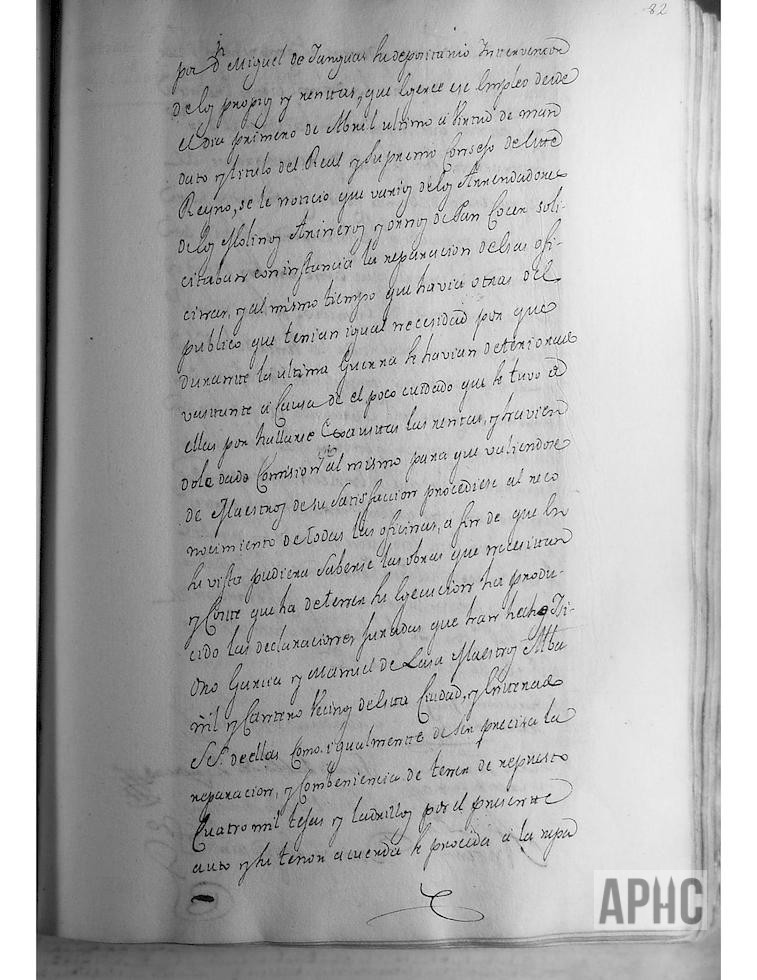 82
por Dn Miguel de Tanguas su depositario Interventor
de los propios y rentas, que egerce ese Empleo desde
el dia primero de Abril ultimo a virtud de man
dato y titulo del Real y Supremo Consejo de este
Reyno, se le noticio que varios de los Arrendadores
de los Molinos Arineros y ornos de Pan Cocer soli-
citaban con instancia la reparacion de sus ofi-
cinas, y al mismo tiempo que havia otras del
publico que tenian igual necesidad por que
durante la ultima Guerra se havian deteriorado
vastante a Causa de el poco cuidado que se tuvo de
ellas por hallarse Exaustas las rentas, y havien
dole dado Comision al mismo para que valiendose
de Maestros de su satisfaccion procediese al reco
nocimiento de todas las oficinas, a fin de que en
su vista pudiera saberse las obras que necesitan
y Coste que ha de tener su egecucion ha produ-
cido las declaraciones juradas que han hecho Isi-
dro Garcia y Manuel de Lasa Maestros Alba
ñil y Cantero vecinos de esta Ciudad, y Enterado
S.S. de ellas como igualmente de ser precisa la
reparacion, y Combeniencia de tener de repuesto
Cuatro mil tejas y ladrillos por el presente
auto y su tenor acuerda se proceda a la repa
APHC